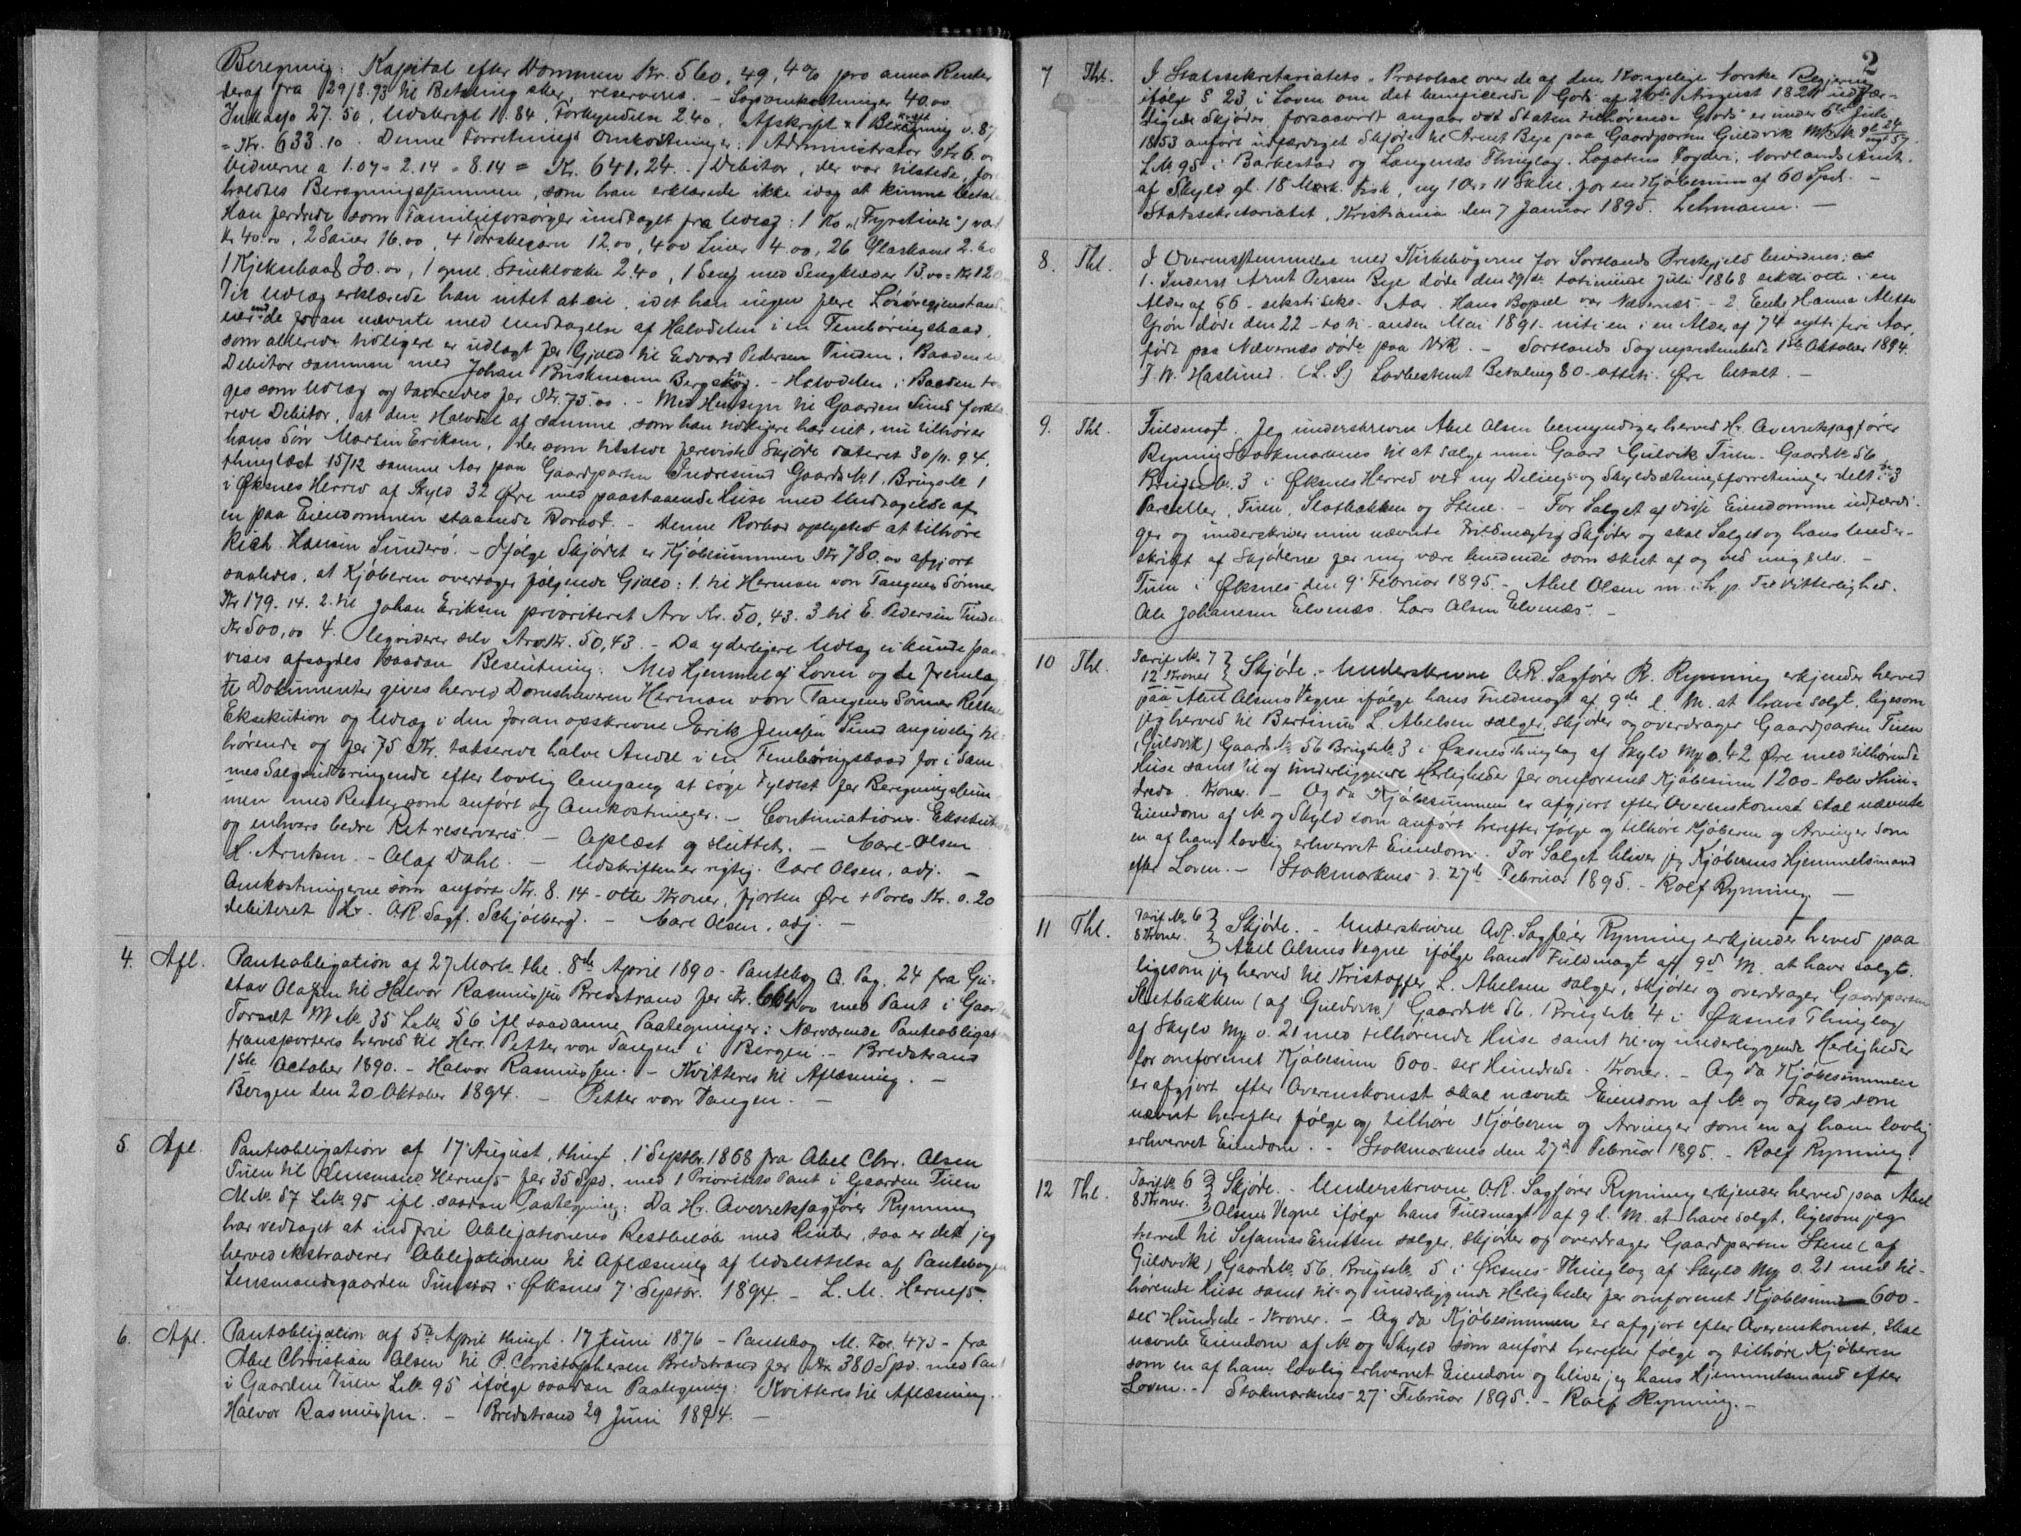 Beregning: Kapital efter Dommen Kr. 560,49, 4% pro anno Renter
deraf fra 29/8.93 til Betaling sker, reserveres. - Sagsomkostninger 40.00
Inkasso 27.50, Udskrift 1.84, Forkyndelse 2.40, Afskrift Beregning 0.87
= Kr. 633.10. Denne Forretnings Omkostninger: Administrator Kr 6.00
Vidnerne a 1.07 = 2.14 = 8.14 = Kr. 641,24. Debitor, der var tilstede, fore
holdtes Beregningssummen, som han erklærede ikke idag at kunne betale
Han fordrede som Familieforsørger undtaget fra Udlæg: 1 Ko "(Fryrelinde") værd
Kr 40.00, 2 Sauer 16.00, 4 Torskegarn 12.00, 400 Liner 4.00, 26 Glaskavl 2.60
1 Kjeksebaad 30.00, 1 gml. Stueklokke 2.40, 1 Seng med Sengklæder 13.00 = Kr 120
Til Udlæg erklærede han intet at eie, idet han ingen flere Løsøregjenstande
end de foran nævnte med Undtagelse af Halvdelen i en Fembøringsbaad,
som allerede tidligere er udlagt for Gjæld til Edvard Pedersen Tinden. Baaden
Debitor sammen med Johan Brinkmann Bergskog. - Halvdelen i Baaden to-
ges som Udlæg og taxtredes for Kr. 75.00. - Med Hensyn til Gaarden Sund forkla
rede Debitor, at den Halvdel af samme, som han tidligere har eiet, nu tilhører
hans Søn Martin Eriksen, der som tilstede foreviste Skjøde dateret 30/11.94,
thinglæst 15/12 samme Aar paa Gaardparten Indresund Gaards No. 1, Brugs No 1
i Øksnes Herred af Skyld 32 Øre med paastaaende Huse med Undtagelse af
en paa Eiendommen staaende Rorbod. - Denne Rorbod oplystes at tilhøre
Rich. Hansen Sunderø. - Ifølge Skjødet er Kjøbesummen Kr. 780.00 afgjort
saaledes, at Kjøberen overtager følgende Gjæld: 1. til Herman von Tangens Sønner
Kr 179.14. 2. til Johan Eriksen prioriteret Arv Kr. 50,43. 3 til E. Pedersen Tinden
Kr 500,00 4. liqviderer selv Arv Kr. 50,43. - Da yderligere Udlæg ei kunde paa-
vises afsagdes saadan Beslutning: Med Hjemmel af Loven og de fremlag-
te Dokumenter gives herved Domshaveren Herman von Tangens Sønner Rettens
Eksekution og Udlæg i den foran opskrevne Erik Jenssen Sund angivelig til-
hørende og for 75 Kr. takserede halve Andel i en Fembøringsbaad for i Sam-
mes Salgsindbringende efter lovlig Omgang at søge Fyldest for Beregningssum-
men med Renter som anført og Omkostninger. - Continuations Eksekution
og enhvers bedre Ret reserveres. - Oplæst og sluttet. - Carl Olsen
H. Arntsen. - Olaf Dahl. - Udskriften er rigtig. Carl Olsen, adj. -
Omkostningerne som anført Kr. 8.14 - otte Kroner, fjorten Øre + Porto Kr. 0.20
debiteret Hr. OR. Sagf. Schjølberg. - Carl Olsen, adj. -
4. Afl. Panteobligation af 27 Marts thl. 8de April 1890 - Pantebog O. Pag. 24 fra Gu-
stav Olafsen til Halvor Rasmussen Bredstrand for Kr. 664,00 med Pant i Gaarden
Torsæt M No. 35 L No. 56 ifl. saadanne Paategninger: Nærværende Panteobligation
transporteres herved til Herr. Petter von Tangen i Bergen. - Bredstrand
1ste October 1890. - Halvor Rasmussen. - Kvitteres til Aflæsning. -
Bergen den 20 Oktober 1894. - Petter von Tangen. -
5. Afl. Panteobligation af 17 August, thingl. 1 Septbr. 1868 fra Abel Chr. Olsen
Tuen til Lensmand Hernes for 35 Spd. med 1 Prioritets Pant i Gaarden Tuen
M No. 57 L No. 95 ifl. saadan Paategning: Da Hr. Overretssagfører Rynning
har vedtaget at indfri Obligationens Restbeløb med Renter, saa er det jeg
herved ekstraderer Obligationen til Aflæsning af Udslettelse af Pantebogen
Lensmandsgaarden Tunstad i Øksnes 7 Septbr. 1894. - L. M. Hernes.
6. Afl. Pantobligation af 5te April thingl. 17 Juni 1876 - Pantebog M. Fol. 473 - fra
Abel Christian Olsen til P. Christophersen Bredstrand for 380 Spd. med Pant
i Gaarden Tuen L No. 95 ifølge saadan Paategning: Kvitteres til Aflæsning.
Halvor Rasmussen. - Bredstrand 29 Juni 1894. -
2
7 Thl. I Statssekretariatets "Protokol over de af den Kongelige Norske Regjering
ifølge § 23 i Loven om det beneficerede Gods af 20de August 1821 udfær-
digede Skjøder, forsaavidt angaar det Staten tilhørende Gods" er under 6te Juli
1853 anført udfærdiget Skjøde til Arent Bye paa Gaardparten Guldvik M No. gl. 24 ny 57
L No 95 i Barkestad og Langenæs Thinglag, Lofotens Fogderi, Nordlands Amt,
af Skyld gl. 18 Mark Fisk, ny 1 Ort 11 Skill., for en Kjøbesum af 60 Spd. -
Statssekretariatet, Kristiania den 7 Januar 1895. Lehmann. -
8. Thl. I Overensstemmelse med Kirkebøgerne for Sortlands Præstegjeld bevidnes: at
1. Inderst Arnt Persen Bye døde den 29de totiniende Juli 1868 seksti otte i en
Alder af 66 - seksti seks - Aar. Hans Bopæl var Nævernæs - 2. Enke Hanna Aletta
Grøn døde den 22 - to ti - anden Mai 1891 - niti en i en Alder af 74 sytti fire Aar,
født paa Nævernæs død paa Vik. - Sortlands Sogneprestembede 1ste Oktober 1894.
J. N. Haslund. (L. S) Lovbestemt Betaling 80 - otteti - Øre betalt. -
9. Thl. Fuldmagt. Jeg underskrevne Abel Olsen bemyndiger herved Hr. Overretssagfører
Rynning Stokmarknes til at sælge min Gaard Guldvik Tuen - Gaards No 56
Brugs No. 3 i Øksnes Herred ved ny Delings- og Skyldsætningsforretninger delt i 3
Parseller, Tuen, Slotbakken og Stene. - For Salget af disse Eiendomme udfærdi-
ger og underskriver min nævnte Fuldmægtig Skjøder og skal Salget og hans Under-
skrift af Skjøderne for mig være bindende som sket af og ved mig selv. -
Tuen i Øksnes den 9 Februar 1895. - Abel Olsen m. i. h. p. Til Vitterlighed.
Ole Johansen Elvenæs. Lars Olsen Elvenæs. -
10 Thl. Tarif No. 7 12 Kroner } Skjøde. - Underskrevne OR. Sagfører R. Rynning erkjender herved
paa Abel Olsens Vegne ifølge hans Fuldmagt af 9de d. M. at have solgt, ligesom
jeg herved til Bertinus L. Abelsen sælger, skjøder og overdrager Gaardparten Tuen
(Guldvik) Gaards No 56 Brugs No. 3 i Øksnes Thinglag af Skyld My 0.42 Øre med tilhørende
Huse samt til og underliggende Herligheder for omforenet Kjøbesum 1200 - tolv Hun-
drede - Kroner. - Og da Kjøbesummen er afgjort efter Overenskomst skal nævnte
Eiendom af No og Skyld som anført herefter følge og tilhøre Kjøberen og Arvinger som
en af ham lovlig erhvervet Eiendom. For Salget bliver jeg Kjøberens Hjemmelsmand
efter Loven. - Stokmarknes d. 27de Februar 1895. - Rolf Rynning. -
11 Thl. Tarif No 6 8 Kroner. } Skjøde. - Underskrevne OR. Sagfører Rynning erkjender herved paa
Abel Olsens Vegne ifølge hans Fuldmagt af 9 d. M. at have solgt,
ligesom jeg herved til Kristoffer L. Abelsen sælger, skjøder og overdrager Gaardparten
Slotbakken (af Guldvik) Gaards No 56. Brugs No. 4 i Øksnes Thinglag
af Skyld My 0.21 med tilhørende Huse samt til- og underliggende Herligheder
for omforenet Kjøbesum 600 - sex Hundrede - Kroner. - Og da Kjøbesummen
er afgjort efter Overenskomst skal nævnte Eiendom af No og Skyld som
nævnt herefter følge og tilhøre Kjøberen og Arvinger som en af ham lovlig
erhvervet Eiendom. - Stokmarknes den 27de Februar 1895. - Rolf Rynning.
12 Thl. Tarif No. 6 8 Kroner. } Skjøde. - Underskrevne OR. Sagfører Rynning erkjender herved paa Abel
Olsens Vegne ifølge hans Fuldmagt af 9 d. M. at have solgt, ligesom jeg
herved til Sefanias Erntsen sælger, skjøder og overdrager Gaardparten Stene (af
Guldvik) Gaards No. 56 Brugs No. 5 i Øksnes Thinglag af Skyld My 0.21 med til-
hørende Huse samt til- og underliggende Herligheder for omforenet Kjøbesum 600 -
sex Hundrede - Kroner. - Og da Kjøbesummen er afgjort efter Overenskomst, skal
nævnte Eiendom af No og Skyld som anført herefter følge og tilhøre Kjøberen
som en af ham lovlig erhvervet Eiendom og bliver jeg hans Hjemmelsmand efter
Loven. - Stokmarknes 27 Februar 1895. - Rolf Rynning. -